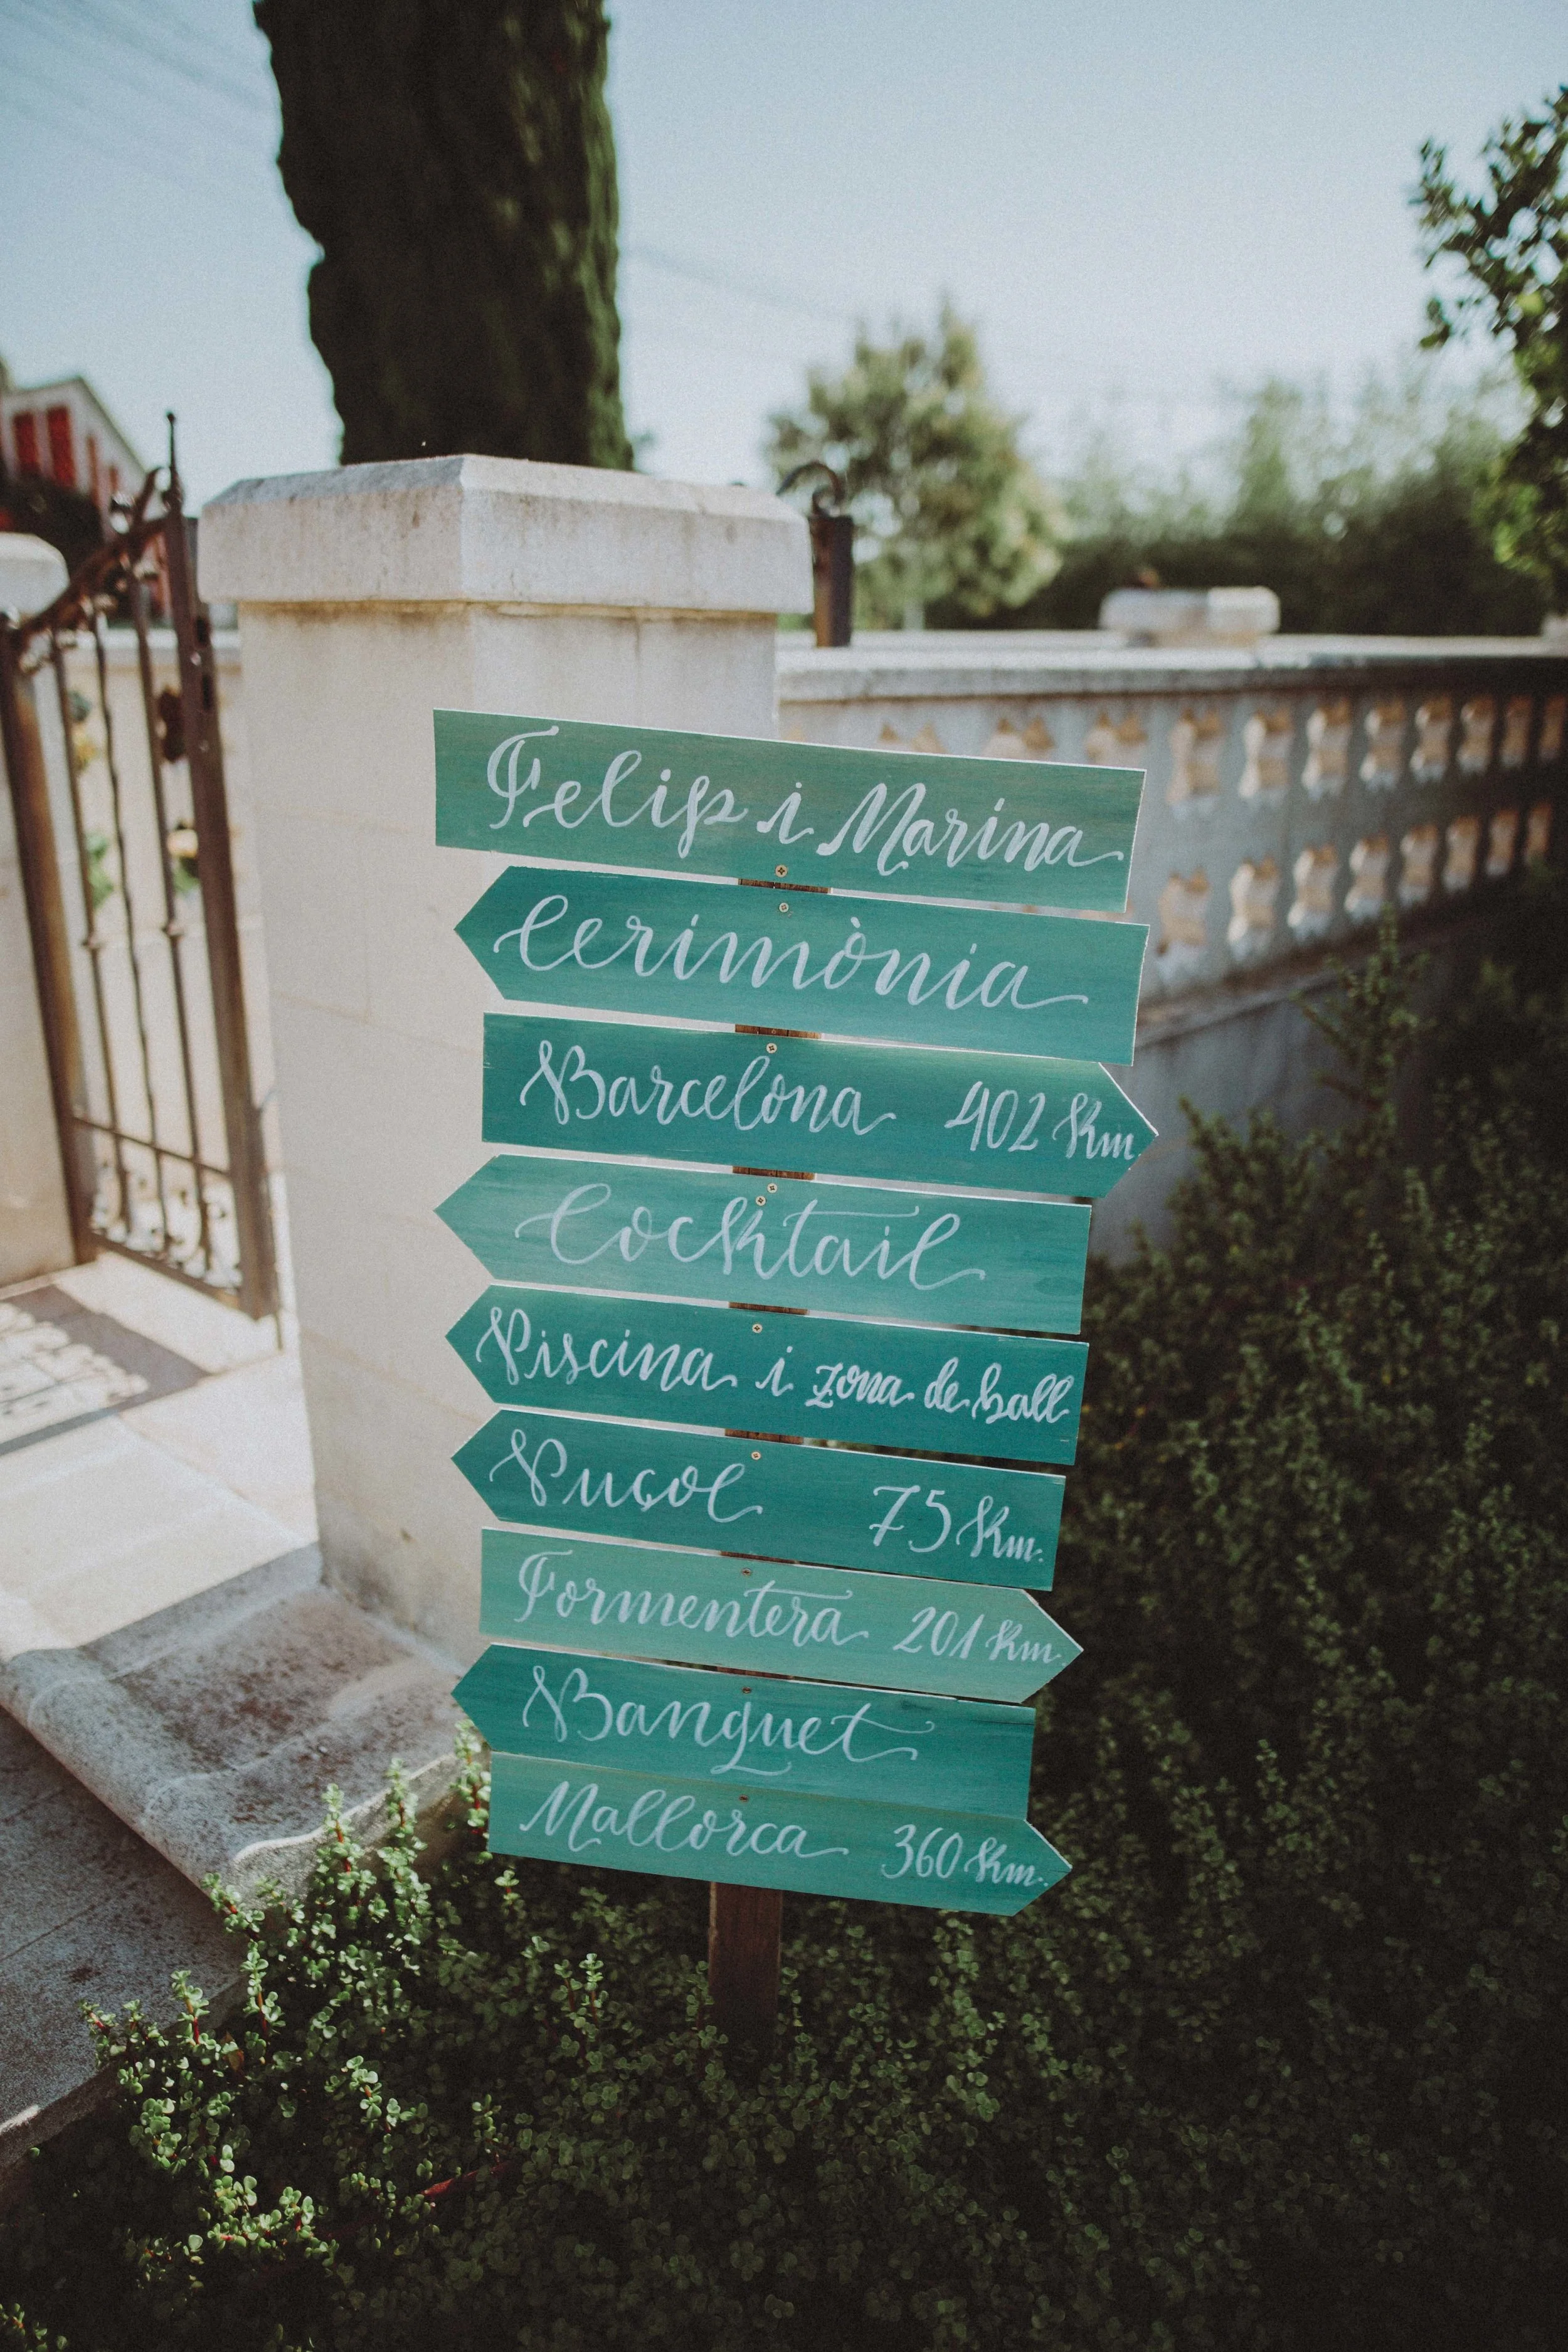 Felip i Marina
Cerimònia
Barcelona 402 Km
Cocktail
Piscina i zona de ball
Puçol 75 Km.
Formentera 201 Km.
Banquet
Mallorca 360 Km.